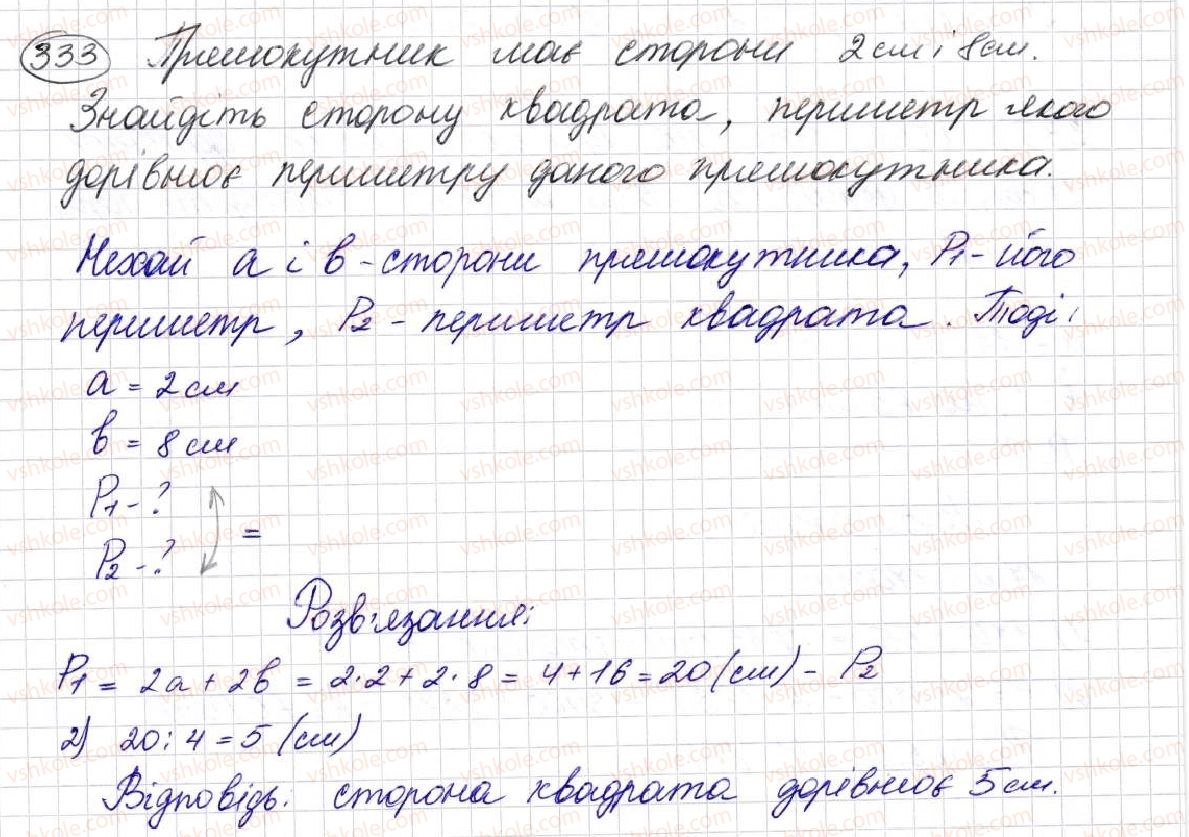 333 Прямокутник має сторони 2 см і 8 см.
Знайдіть сторону квадрата, периметр якого
дорівнює периметру даного прямокутника.
Нехай а і в - сторони прямокутника, P₁ - його
периметр, P₂ - периметр квадрата. Тоді:
а = 2 см
в = 8 см
P₁ - ?
P₂ - ? =
Розв'язання:
P₁ = 2а + 2в = 2·2 + 2·8 = 4 + 16 = 20 (см) - P₂
2) 20 : 4 = 5 (см)
Відповідь. сторона квадрата дорівнює 5 см.